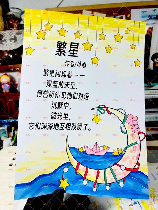 繁星
繁星闪烁着——
深蓝的太空，
何曾听得见他们对语
沉默中，
微光里，
它们深深地互相颂赞了。